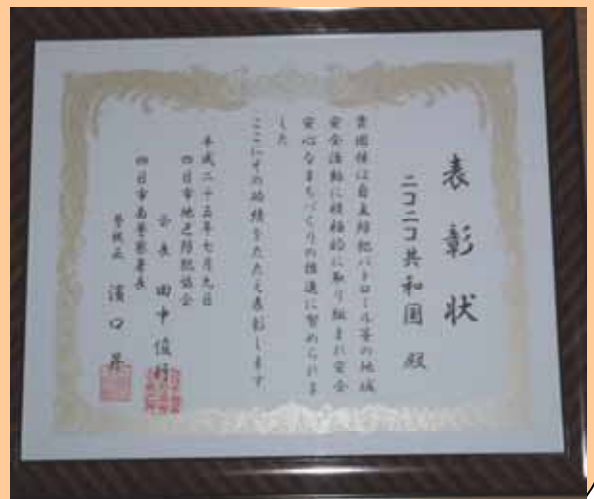 表彰状
ニコニコ共和国 殿
貴団体は自主防犯パトロール等の地域
安全活動に積極的に取り組まれ安全
安心なまちづくりの推進に努められま
した
ここにその功績をたたえ表彰します
平成二十五年七月九日
四日市地区防犯協会
会長 田中俊行
四日市南警察署長
警視正 濵口昇